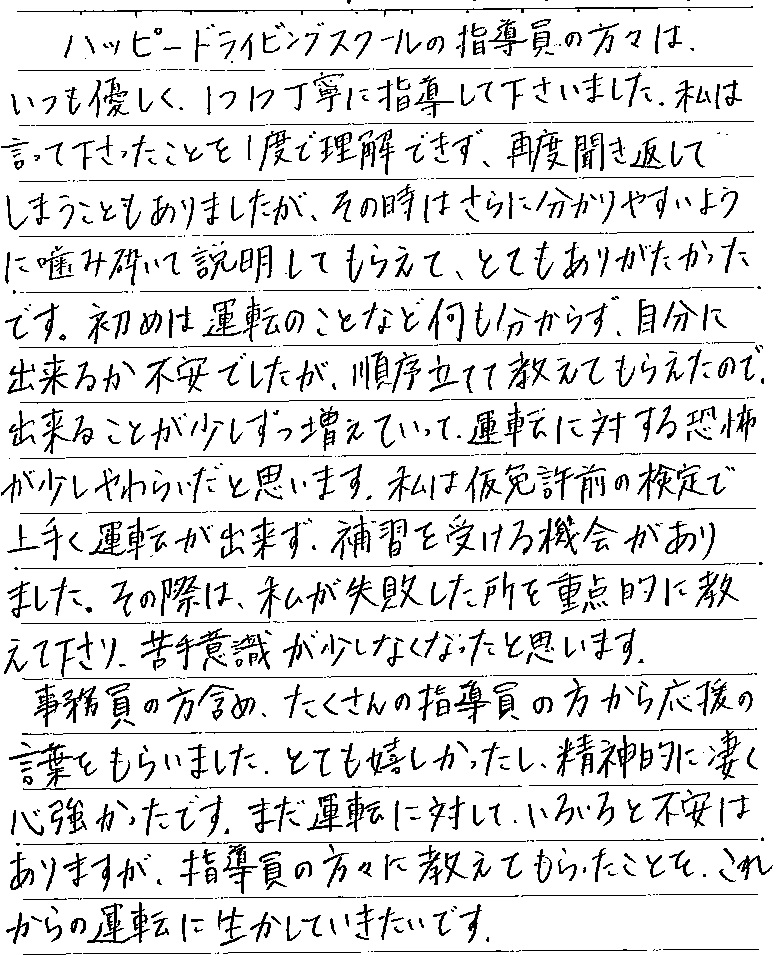 ハッピードライビングスクールの指導員の方々は、
いつも優しく、1つ1つ丁寧に指導して下さいました。私は
言って下さったことを1度で理解できず、再度聞き返して
しまうこともありましたが、その時はさらに分かりやすいよう
に噛み砕いて説明してもらえて、とてもありがたかった
です。初めは運転のことなど何も分からず、自分に
出来るか不安でしたが、順序立てて教えてもらえたので、
出来ることが少しずつ増えていって、運転に対する恐怖
が少しやわらいだと思います。私は仮免許前の検定で
上手く運転が出来ず、補習を受ける機会があり
ました。その際は、私が失敗した所を重点的に教
えて下さり、苦手意識が少しなくなったと思います。
事務員の方含め、たくさんの指導員の方から応援の
言葉をもらいました。とても嬉しかったし、精神的に凄く
心強かったです。まだ運転に対して、いろいろと不安は
ありますが、指導員の方々に教えてもらったことを、これ
からの運転に生かしていきたいです。